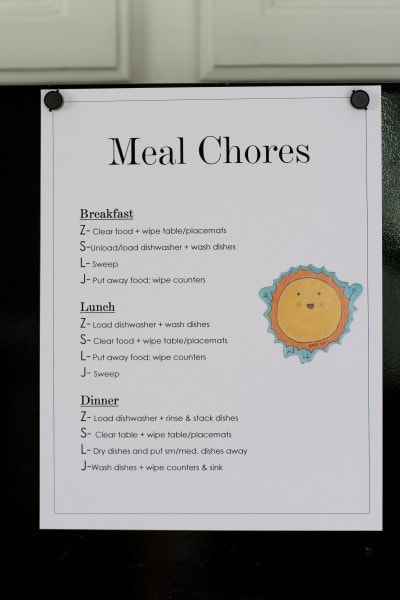 Meal Chores
Breakfast
Z- Clear food + wipe table/placemats
S-Unload/load dishwasher + wash dishes
L- Sweep
J- Put away food; wipe counters
Lunch
Z- Load dishwasher + wash dishes
S- Clear food + wipe table/placemats
L- Put away food; wipe counters
J- Sweep
Dinner
Z- Load dishwasher + rinse & stack dishes
S- Clear table + wipe table/placemats
L- Dry dishes and put sm/med. dishes away
J-Wash dishes + wipe counters & sink